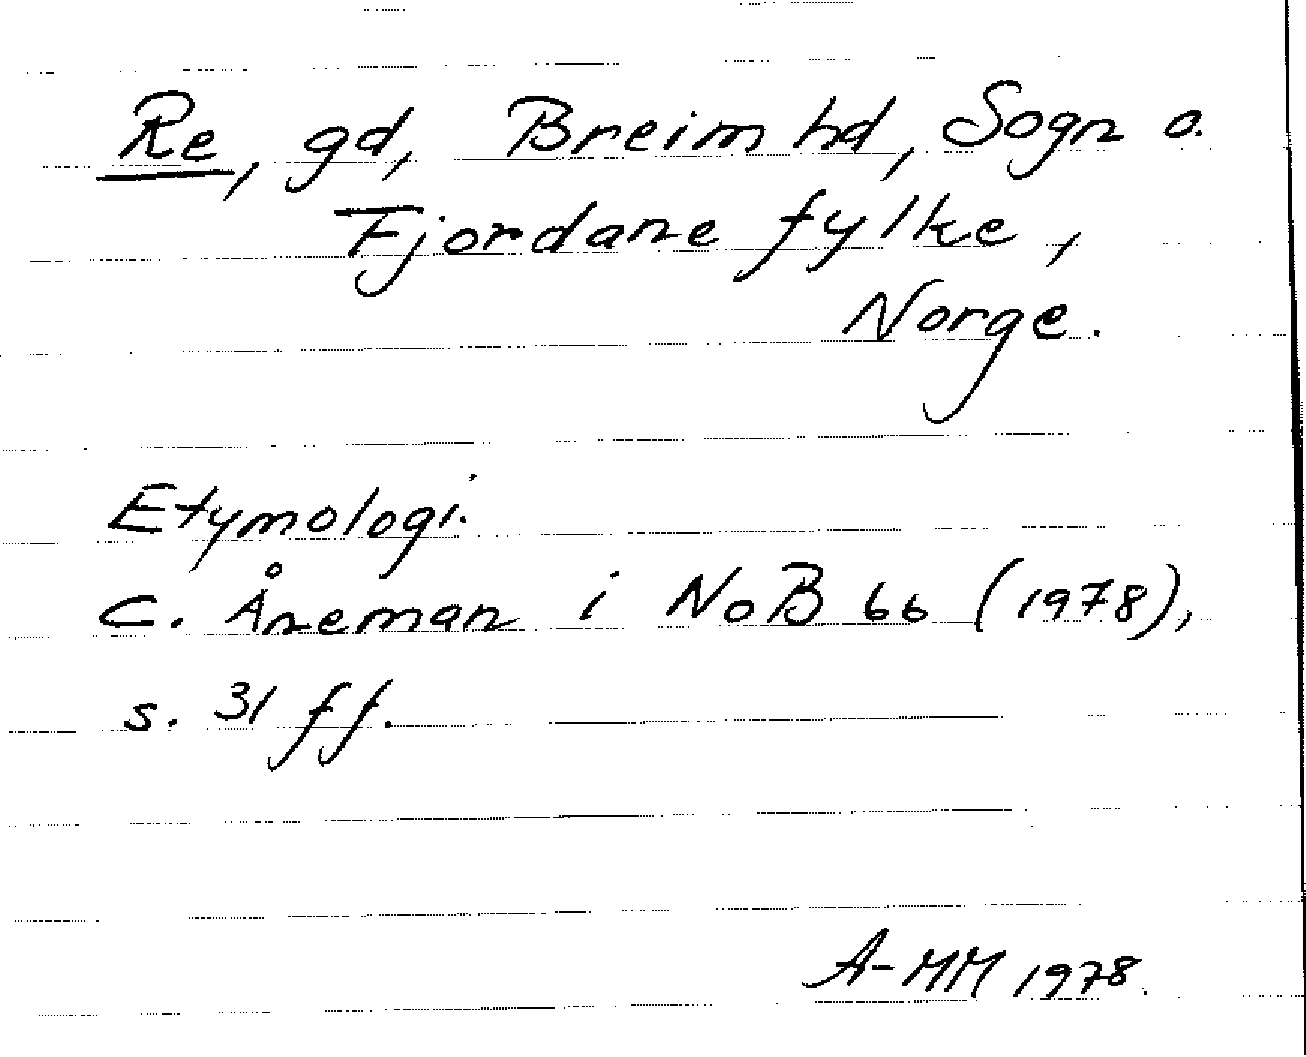 Re, gd, Breim hd, Sogn o.
Fjordane fylke,
Norge.
Etymologi.
C. Åneman i NoB 66 (1978),
s. 31 ff.
A-MM 1978.